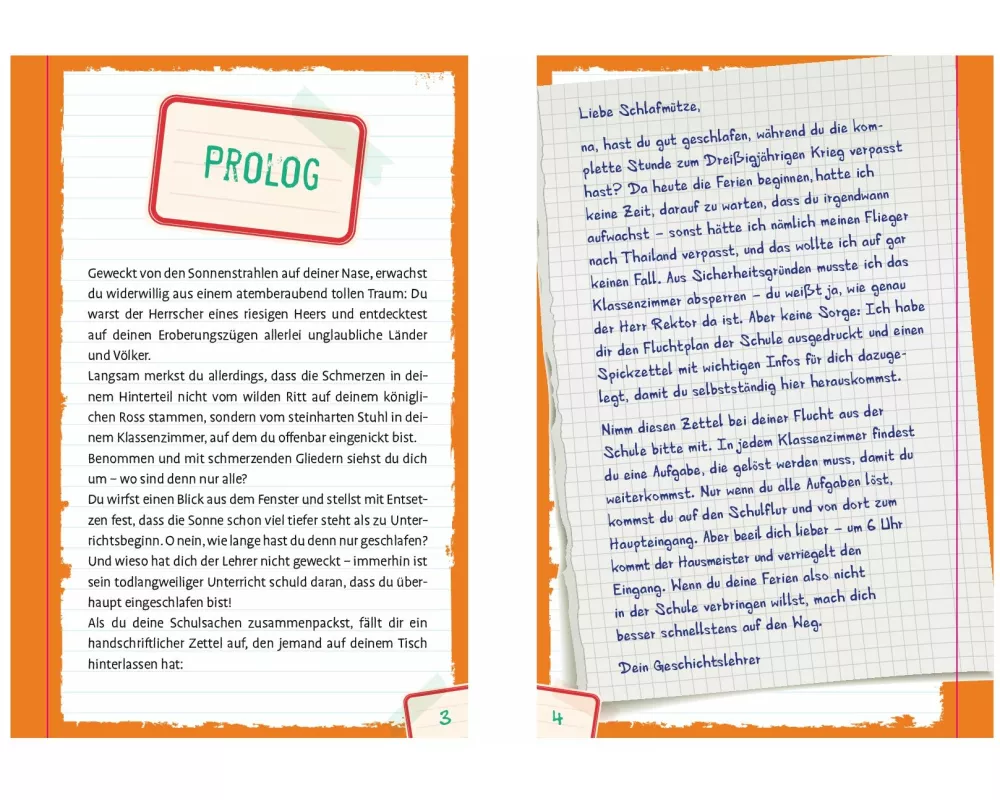 PROLOG
Geweckt von den Sonnenstrahlen auf deiner Nase, erwachst
du widerwillig aus einem atemberaubend tollen Traum: Du
warst der Herrscher eines riesigen Heers und entdecktest
auf deinen Eroberungszügen allerlei unglaubliche Länder
und Völker.
Langsam merkst du allerdings, dass die Schmerzen in dei-
nem Hinterteil nicht vom wilden Ritt auf deinem königli-
chen Ross stammen, sondern vom steinharten Stuhl in dei-
nem Klassenzimmer, auf dem du offenbar eingenickt bist.
Benommen und mit schmerzenden Gliedern siehst du dich
um – wo sind denn nur alle?
Du wirfst einen Blick aus dem Fenster und stellst mit Entset-
zen fest, dass die Sonne schon viel tiefer steht als zu Unter-
richtsbeginn. O nein, wie lange hast du denn nur geschlafen?
Und wieso hat dich der Lehrer nicht geweckt – immerhin ist
sein todlangweiliger Unterricht schuld daran, dass du über-
haupt eingeschlafen bist!
Als du deine Schulsachen zusammenpackst, fällt dir ein
handschriftlicher Zettel auf, den jemand auf deinem Tisch
hinterlassen hat:
3
Liebe Schlafmütze,
na, hast du gut geschlafen, während du die kom-
plette Stunde zum Dreißigjährigen Krieg verpasst
hast? Da heute die Ferien beginnen, hatte ich
keine Zeit, darauf zu warten, dass du irgendwann
aufwachst – sonst hätte ich nämlich meinen Flieger
nach Thailand verpasst, und das wollte ich auf gar
keinen Fall. Aus Sicherheitsgründen musste ich das
Klassenzimmer absperren – du weißt ja, wie genau
der Herr Rektor da ist. Aber keine Sorge: Ich habe
dir den Fluchtplan der Schule ausgedruckt und einen
Spickzettel mit wichtigen Infos für dich dazuge-
legt, damit du selbstständig hier herauskommst.
Nimm diesen Zettel bei deiner Flucht aus der
Schule bitte mit. In jedem Klassenzimmer findest
du eine Aufgabe, die gelöst werden muss, damit du
weiterkommst. Nur wenn du alle Aufgaben löst,
kommst du auf den Schulflur und von dort zum
Haupteingang. Aber beeil dich lieber – um 6 Uhr
kommt der Hausmeister und verriegelt den
Eingang. Wenn du deine Ferien also nicht
in der Schule verbringen willst, mach dich
besser schnellstens auf den Weg.
Dein Geschichtslehrer
4